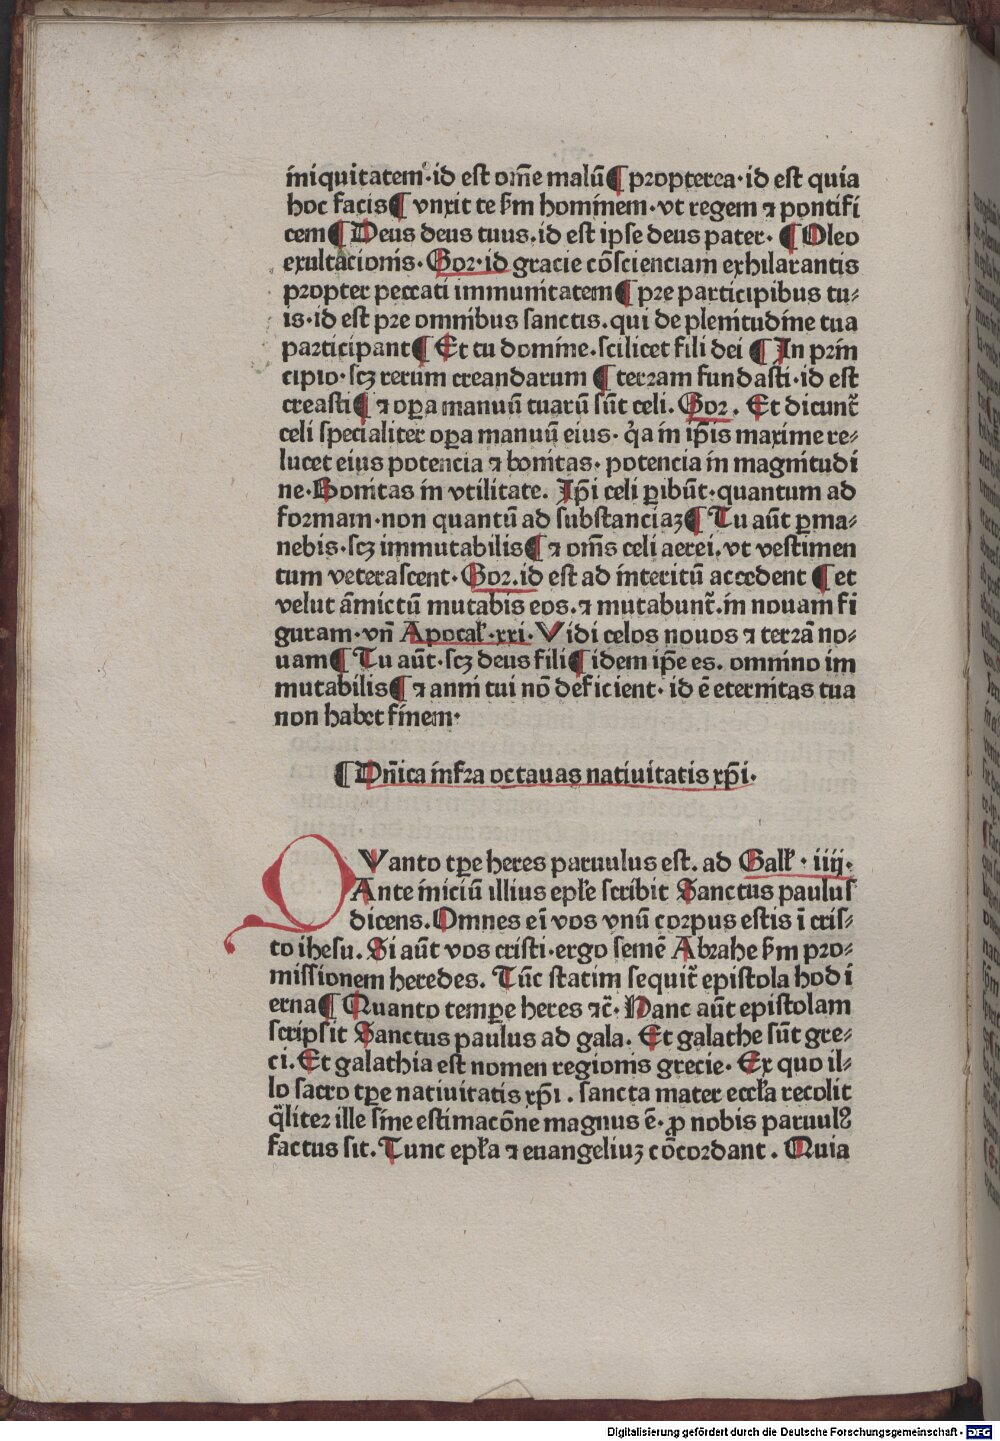 iniquitatem·id est om̄e malū ¶ propterea·id est quia
hoc facis ¶ vnxit te ẜm hominem·vt regem ⁊ pontifi
cem ¶ Deus deus tuus.id est ipse deus pater· ¶ Oleo
exultacionis· Gor·id gracie cōscienciam exhilarantis
propter peccati immunitatem ¶ pre participibus tu⸗
is·id est pre omnibus sanctis.qui de plenitudine tua
participant ¶ Et tu domine·scilicet fili dei ¶ In prin
cipio·scꝫ rerum creandarum ¶ terram fundasti·id est
creasti ¶ ⁊ oꝑa manuū tuarū sūt celi. Gor. Et dicunt̄
celi specialiter oꝑa manuū eius· q̇a in ip̄is maxime re⸗
lucet eius potencia ⁊ bonitas· potencia in magnitudi
ne·Bonitas in vtilitate. Ip̄i celi ꝑibūt·quantum ad
formam·non quantū ad substanciaꝫ ¶ Tu aūt ꝑma⸗
nebis·scꝫ immutabilis ¶ ⁊ om̄s celi aerei.vt vestimen
tum veterascent· Gor.id est ad interitū accedent ¶ et
velut āmictū mutabis eos.⁊ mutabunt̄.in nouam fi
guram·vn̄ Apocal̛·xxi·Vidi celos nouos ⁊ terrā no⸗
uam ¶ Tu aūt·scꝫ deus fili ¶ idem ip̄e es. omnino im
mutabilis ¶ ⁊ anni tui nō deficient· id ē eternitas tua
non habet finem·
¶ Dn̄ica infra octauas natiuitatis xp̄i·
QVanto tꝑe heres paruulus est. ad Gall̛· iiij·
Ante iniciū illius epl̄e scribit Sanctus paulus
dicens.Omnes ei̅ vos vnū corpus estis ī cris⸗
to ihesu. Si aūt vos cristi·ergo semē Abrahe ẜm pro⸗
missionem heredes. Tūc statim sequit̄ epistola hodi
erna ¶ Quanto tempe̅ heres ⁊c̄· Hanc aūt epistolam
scripsit Sanctus paulus ad gala. Et galathe sūt gre⸗
ci.Et galathia est nomen regionis grecie· Ex quo il⸗
lo sacro tꝑe natiuitatis xp̄i . sancta mater eccl̄a recolit
q̄liter ille sine estimacōne magnus ē· ꝓ nobis paruulꝰ
factus sit.Tunc epl̄a ⁊ euangeliuꝫ cōcordant. Quia
Digitalisierung gefördert durch die Deutsche Forschungsgemeinschaft - DFG